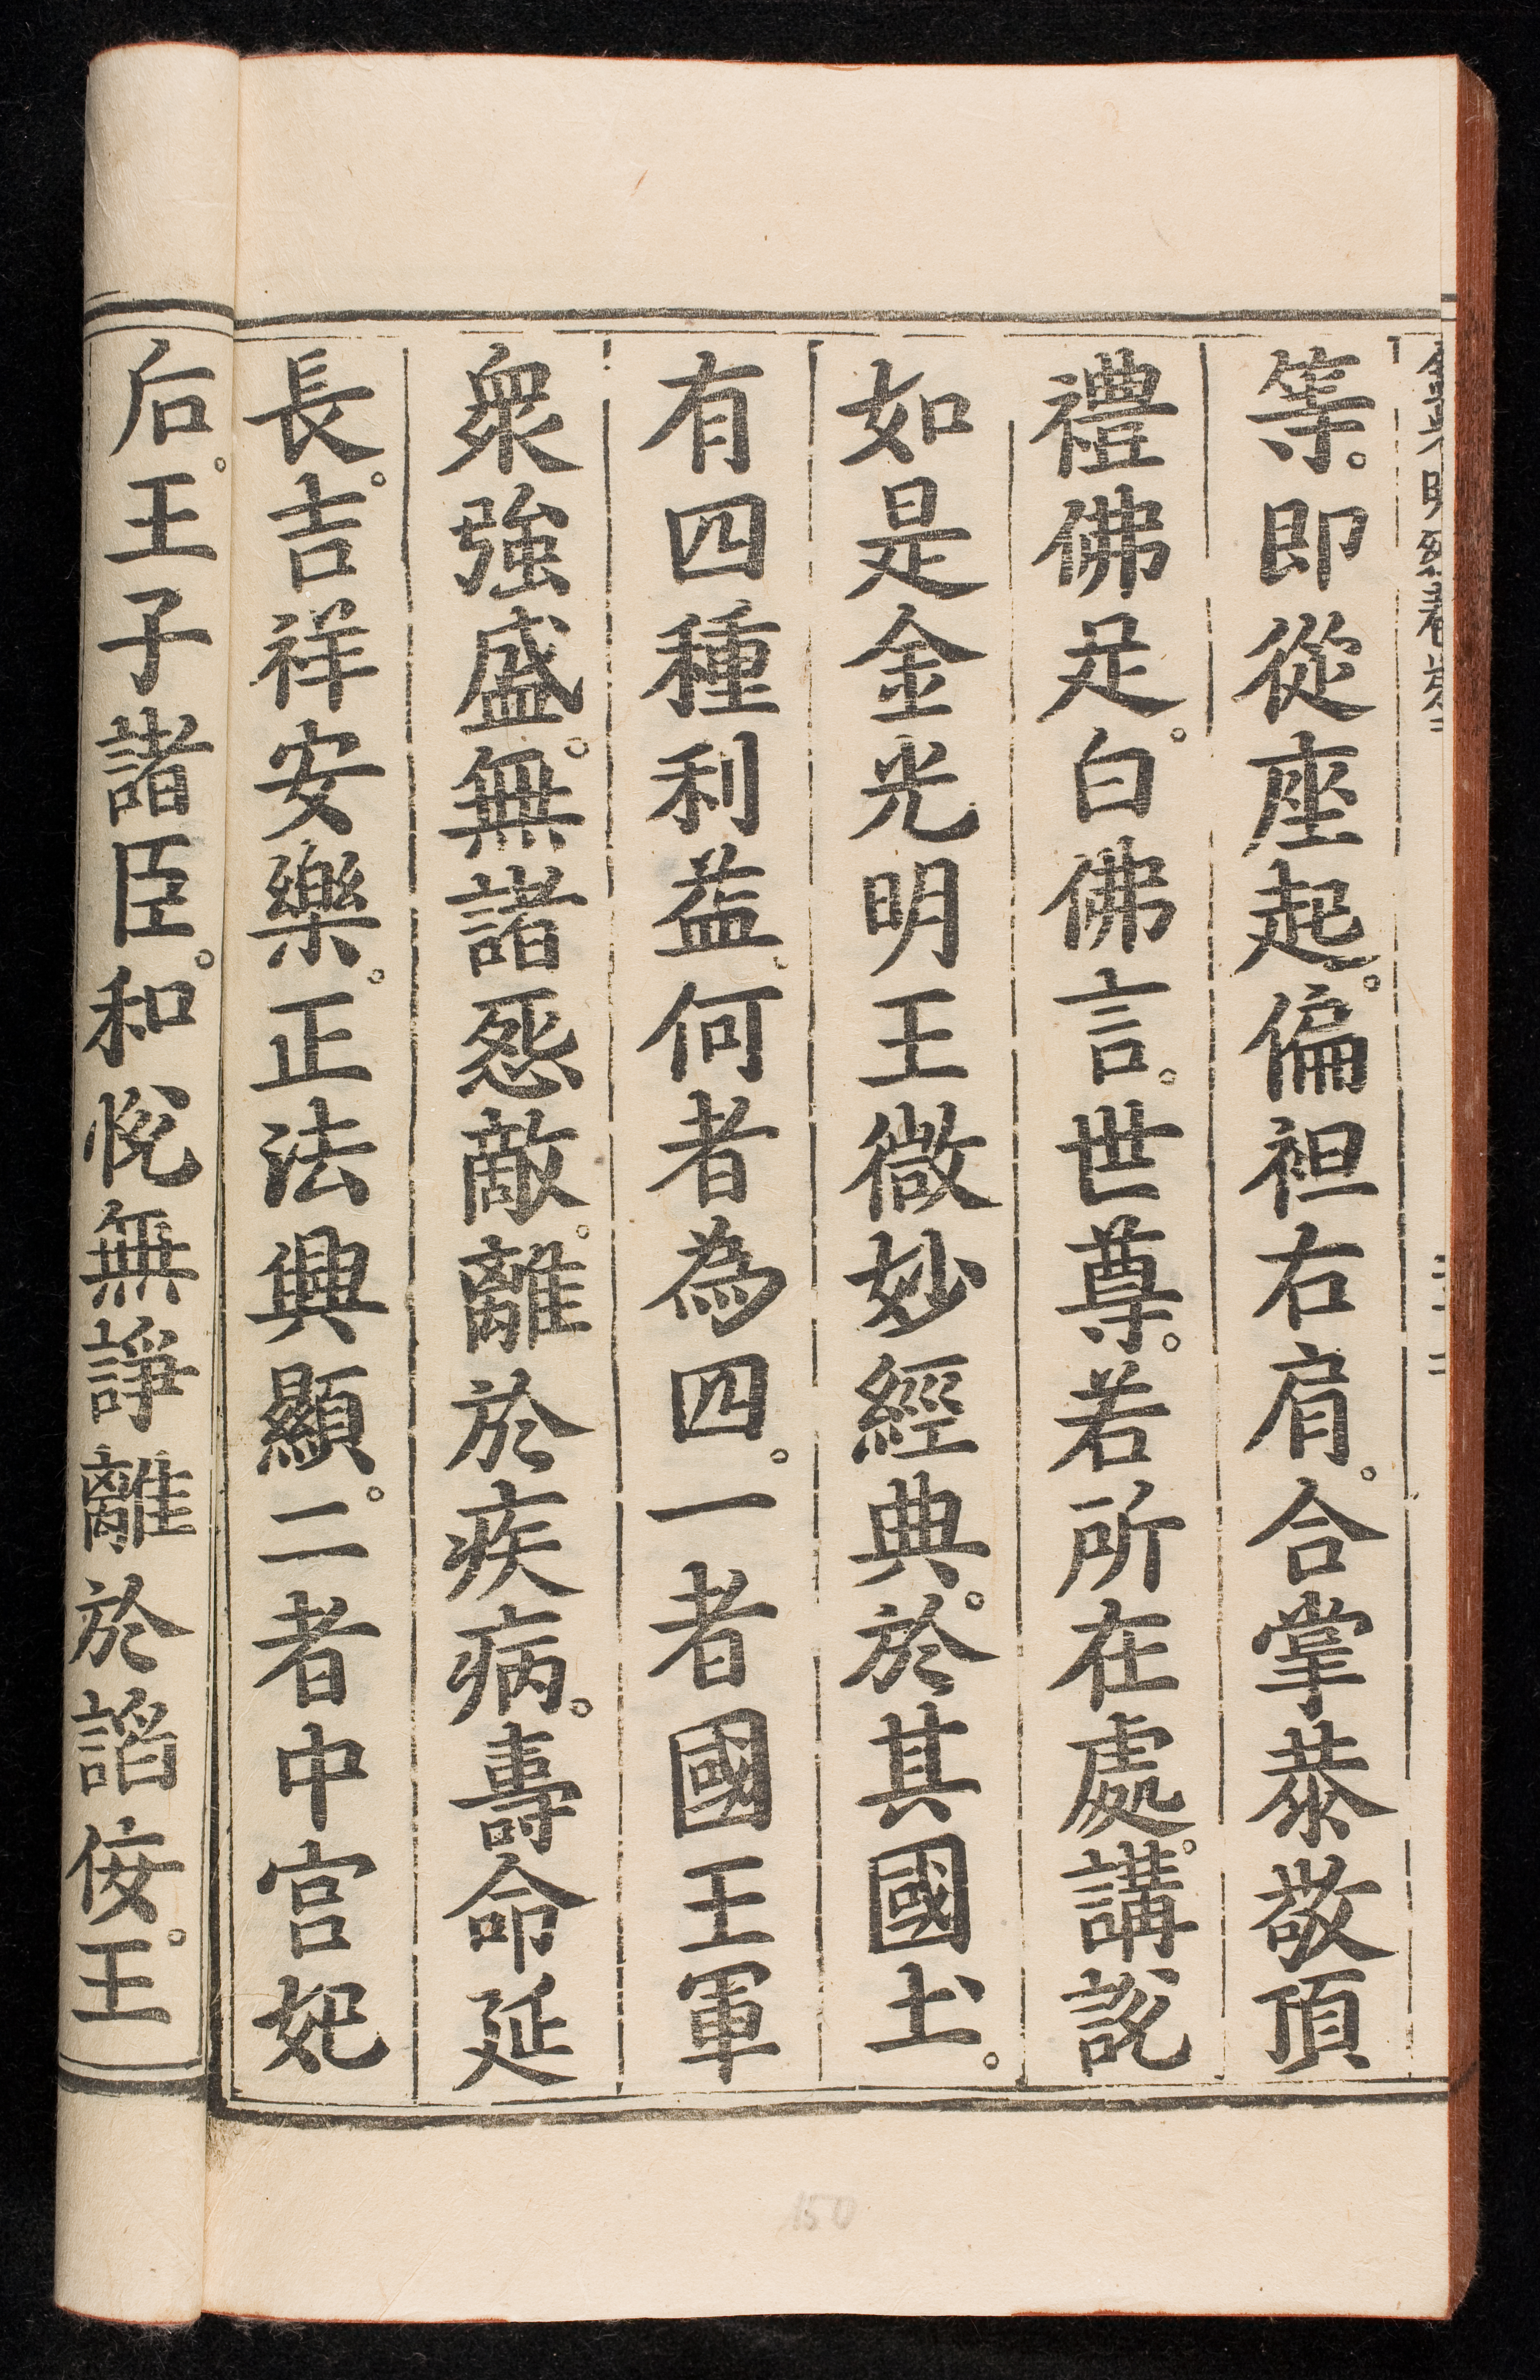 等。即從座起。偏袒右肩。合掌恭敬頂
禮佛足。白佛言。世尊。若所在處。講說
如是金光明王微妙經典。於其國土。
有四種利益。何者為四。一者國王軍
眾強盛。無諸怨敵。離於疾病。壽命延
長。吉祥安樂。正法興顯。二者中宮妃
后。王子諸臣。和悅無諍離於諂佞。王
150